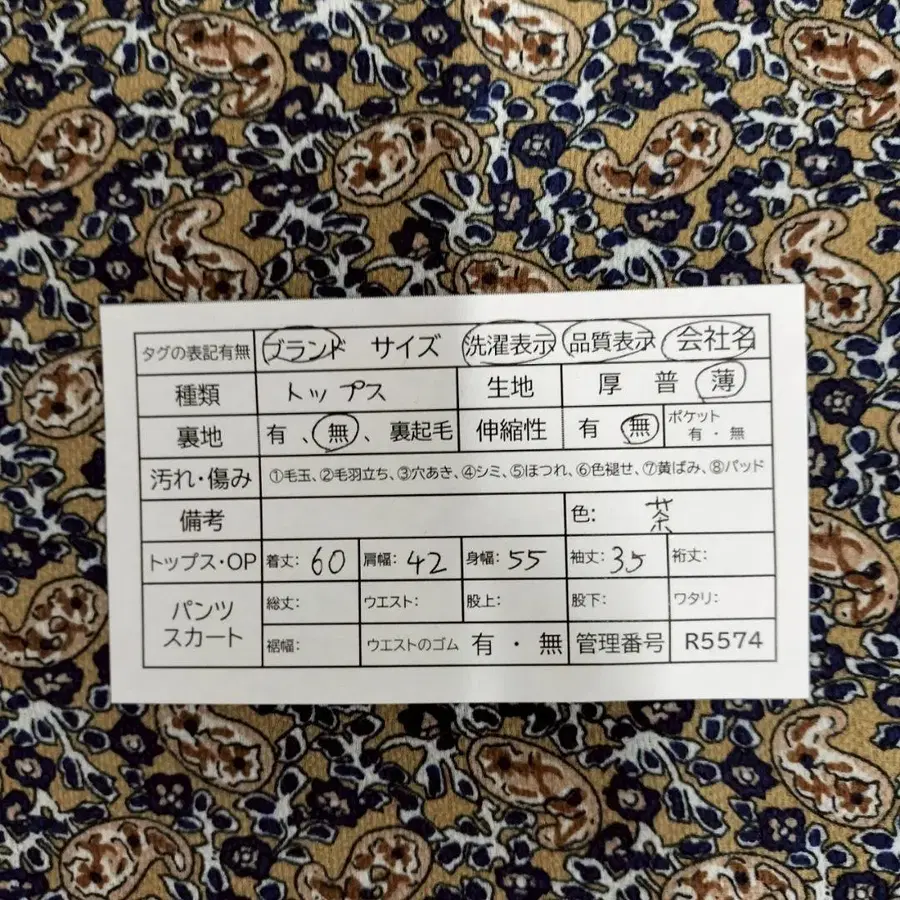 タグの表記有無 ブランド サイズ 洗濯表示 品質表示 会社名
種類 トップス 生地 厚 普 薄
裏地 有、無、裏起毛 伸縮性 有 無 ポケット 有・無
汚れ・傷み ①毛玉、②毛羽立ち、③穴あき、④シミ、⑤ほつれ、⑥色褪せ、⑦黄ばみ、⑧パッド
備考 色: 茶
トップス・OP 着丈: 60 肩幅: 42 身幅: 55 袖丈: 35 裄丈:
パンツ スカート 総丈: ウエスト: 股上: 股下: ワタリ:
裾幅: ウエストのゴム 有・無 管理番号 R5574